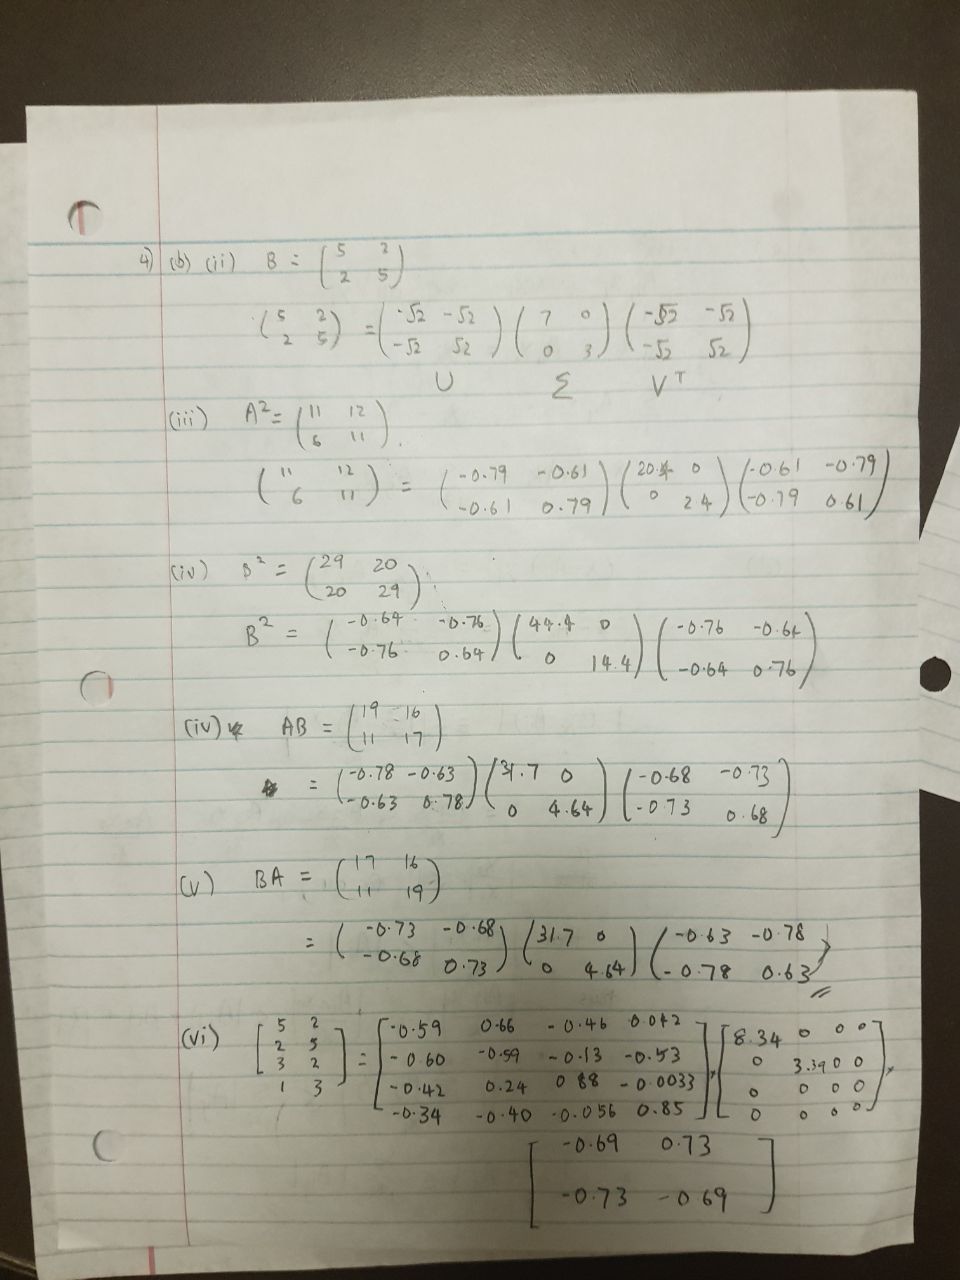 4) (b) (ii) B = ( 5 2
2 5 )
( 5 2
2 5 ) = ( -√2 -√2
-√2 √2 ) ( 7 0
0 3 ) ( -√2 -√2
-√2 √2 )
U Σ V^T
(iii) A² = ( 11 12
6 11 ).
( 11 12
6 11 ) = ( -0.79 -0.61
-0.61 0.79 ) ( 20.4 0
0 2.4 ) ( -0.61 -0.79
-0.79 0.61 )
(iv) B² = ( 29 20
20 29 )
B² = ( -0.64 -0.76
-0.76 0.64 ) ( 44.4 0
0 14.4 ) ( -0.76 -0.64
-0.64 0.76 )
(iv) AB = ( 19 16
11 17 )
= ( -0.78 -0.63
-0.63 0.78 ) ( 31.7 0
0 4.64 ) ( -0.68 -0.73
-0.73 0.68 )
(v) BA = ( 17 16
11 19 )
= ( -0.73 -0.68
-0.68 0.73 ) ( 31.7 0
0 4.64 ) ( -0.63 -0.78
-0.78 0.63 )
(vi) [ 5 2
2 5
3 2
1 3 ] = [ -0.59 0.66 -0.46 0.042
-0.60 -0.59 -0.13 -0.53
-0.42 0.24 0.88 -0.0033
-0.34 -0.40 -0.056 0.85 ] × [ 8.34 0 0 0
0 3.39 0 0
0 0 0 0
0 0 0 0 ] ×
[ -0.69 0.73
-0.73 -0.69 ]